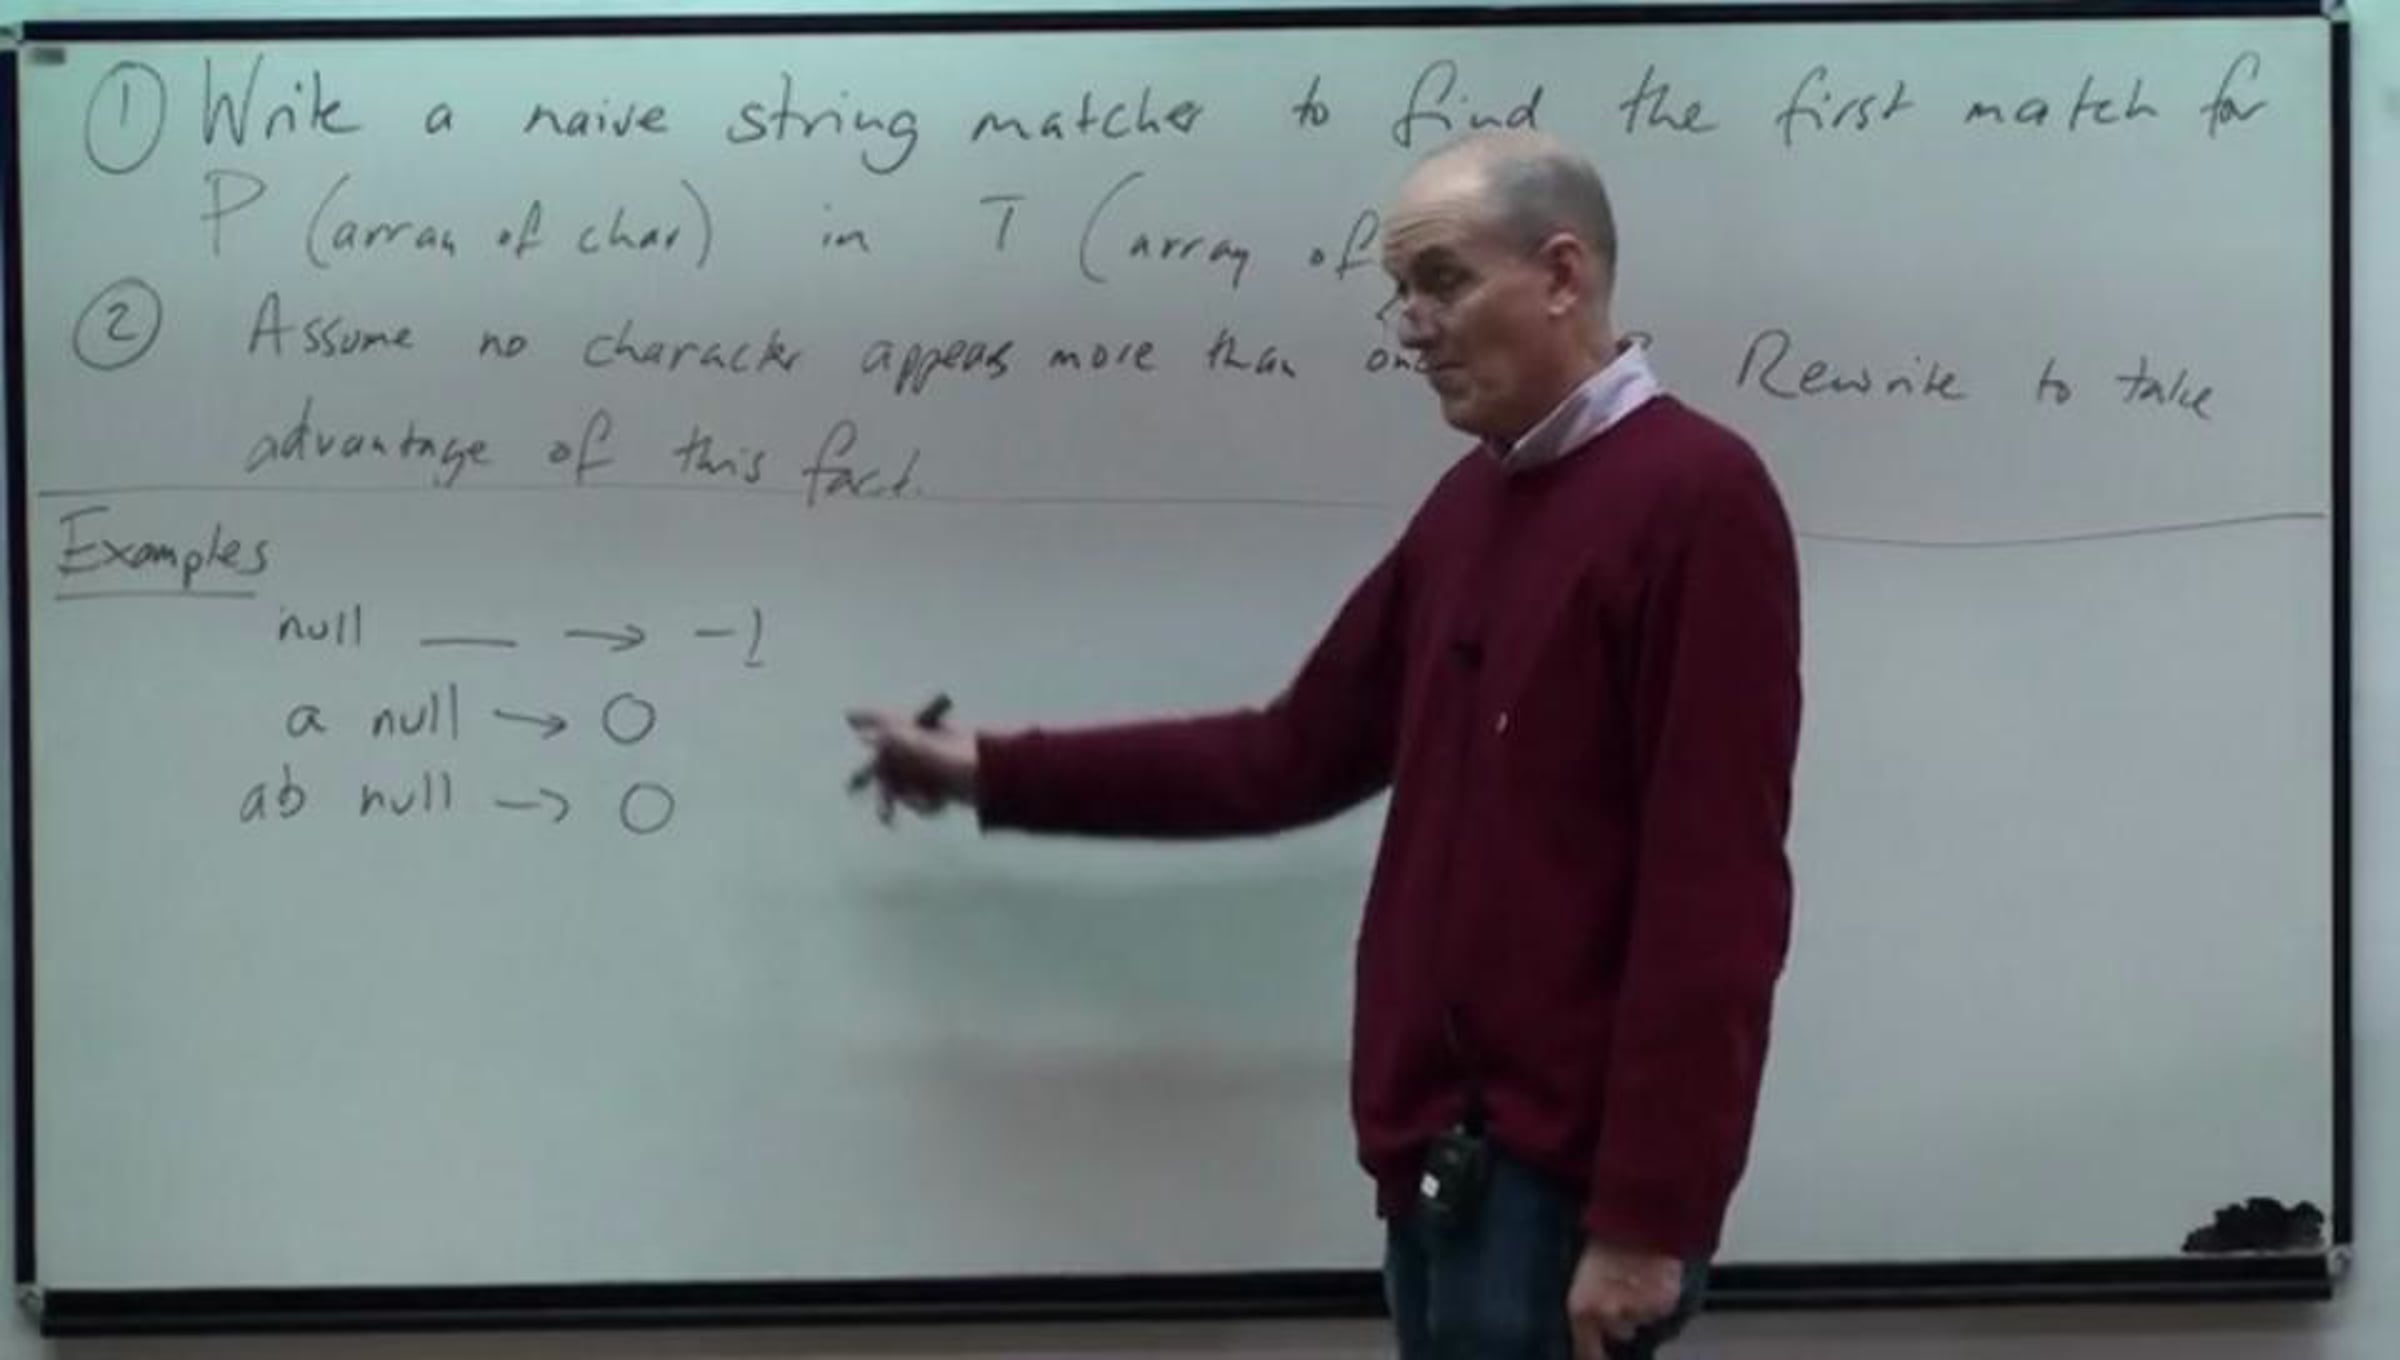 ① Write a naive string matcher to find the first match for
P (array of char) in T (array of
② Assume no character appears more than Rewrite to take
advantage of this fact.
Examples
null — → -1
a null → 0
ab null → 0